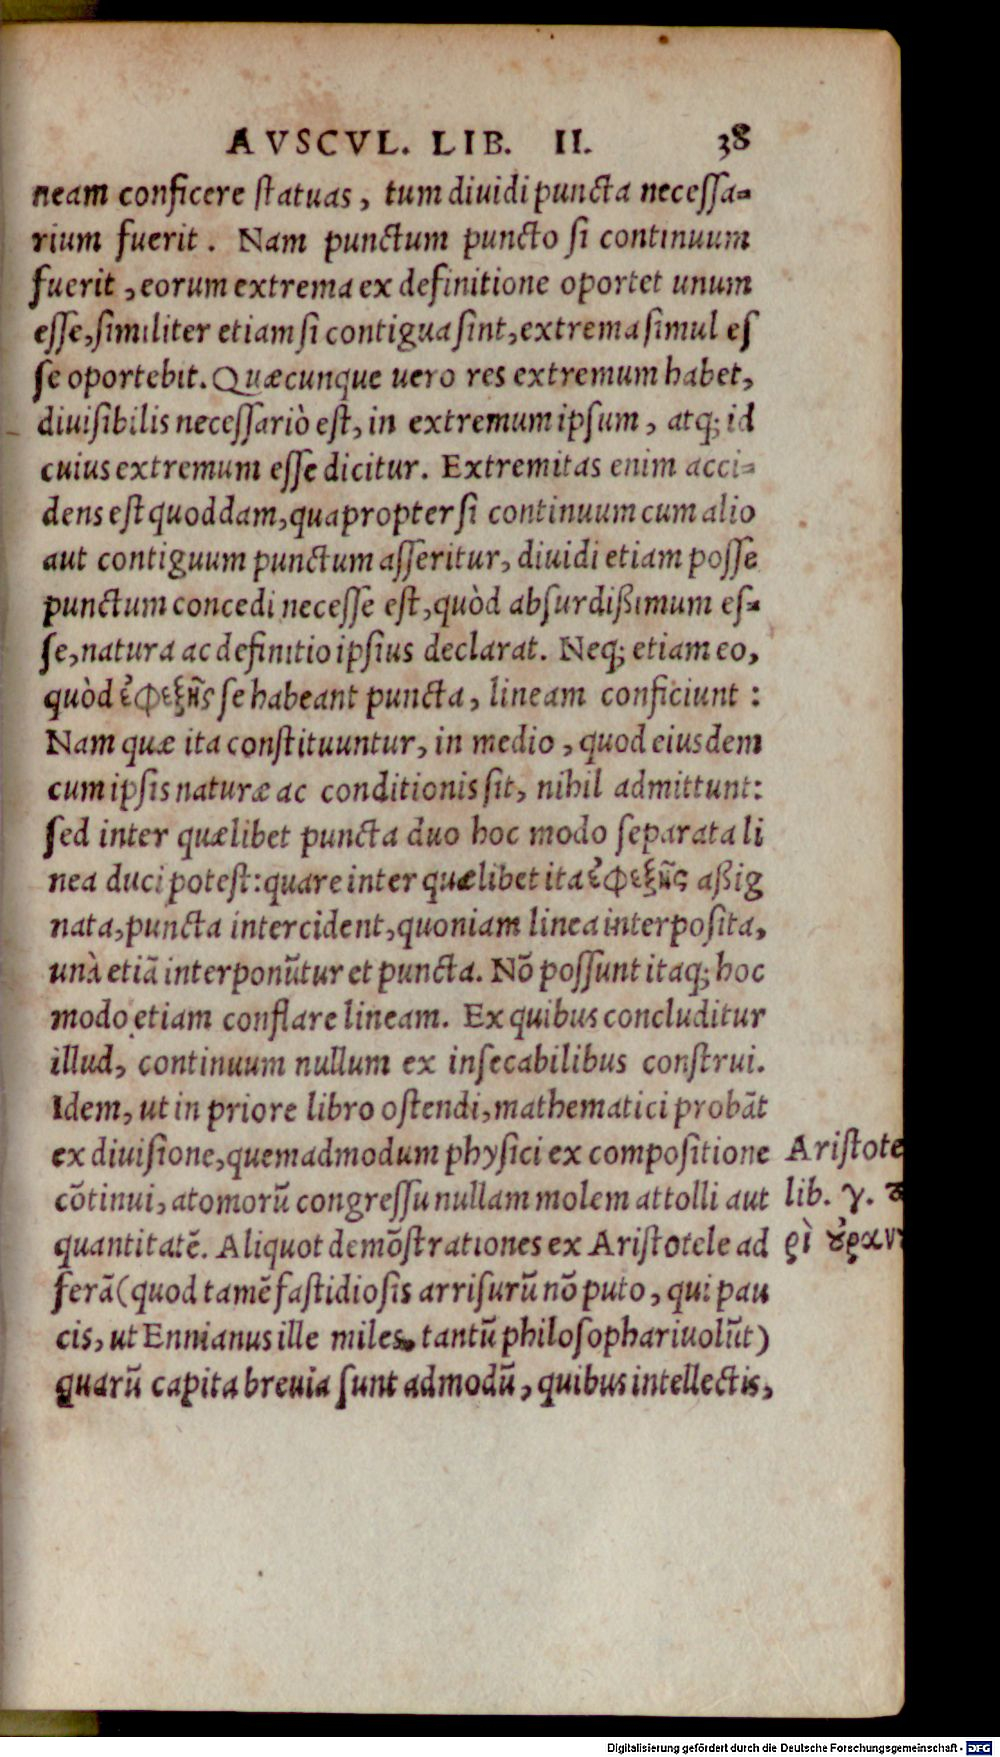 AVSCVL. LIB. II. 38
neam conficere ſtatuas, tum diuidi puncta neceſſa-
rium fuerit. Nam punctum puncto ſi continuum
fuerit, eorum extrema ex definitione oportet unum
eſſe, ſimiliter etiam ſi contigua ſint, extrema ſimul eſ
ſe oportebit. Quæcunque uero res extremum habet,
diuiſibilis neceſſariò eſt, in extremum ipſum, atq; id
cuius extremum eſſe dicitur. Extremitas enim acci-
dens eſt quoddam, quapropter ſi continuum cum alio
aut contiguum punctum aſſeritur, diuidi etiam poſſe
punctum concedi neceſſe eſt, quòd abſurdißimum eſ-
ſe, natura ac definitio ipſius declarat. Neq; etiam eo,
quòd ἐφεξῆς ſe habeant puncta, lineam conficiunt:
Nam quæ ita conſtituuntur, in medio, quod eiusdem
cum ipſis naturæ ac conditionis ſit, nihil admittunt:
ſed inter quælibet puncta duo hoc modo ſeparata li
nea duci poteſt: quare inter quælibet ita ἐφεξῆς aßig
nata, puncta intercident, quoniam linea interpoſita,
unà etiā interponūtur et puncta. Nō poſſunt itaq; hoc
modo etiam conflare lineam. Ex quibus concluditur
illud, continuum nullum ex inſecabilibus conſtrui.
Idem, ut in priore libro oſtendi, mathematici probāt
ex diuiſione, quemadmodum phyſici ex compoſitione
cōtinui, atomorū congreſſu nullam molem attolli aut
quantitatē. Aliquot demōſtrationes ex Ariſtotele ad
ferā (quod tamē faſtidioſis arriſurū nō puto, qui pau
cis, ut Ennianus ille miles, tantū philoſophari uolūt)
quarū capita breuia ſunt admodū, quibus intellectis,
Ariſtote
lib. γ. π
ρὶ οὐραν
Digitalisierung gefördert durch die Deutsche Forschungsgemeinschaft - DFG